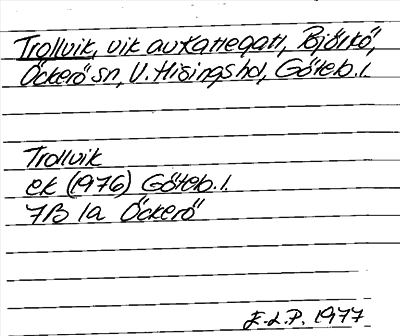 Trollvik, vik av Kattegatt, Björkö,
Öckerö sn, V. Hisings hd, Göteb. l.
Trollvik
ek (1976) Göteb. l.
7B 1a Öckerö
E.L.P. 1977